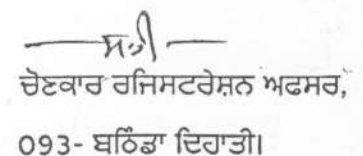 ਸਹੀ
ਚੋਣਕਾਰ ਰਜਿਸਟਰੇਸ਼ਨ ਅਫਸਰ,
093- ਬਠਿੰਡਾ ਦਿਹਾਤੀ।